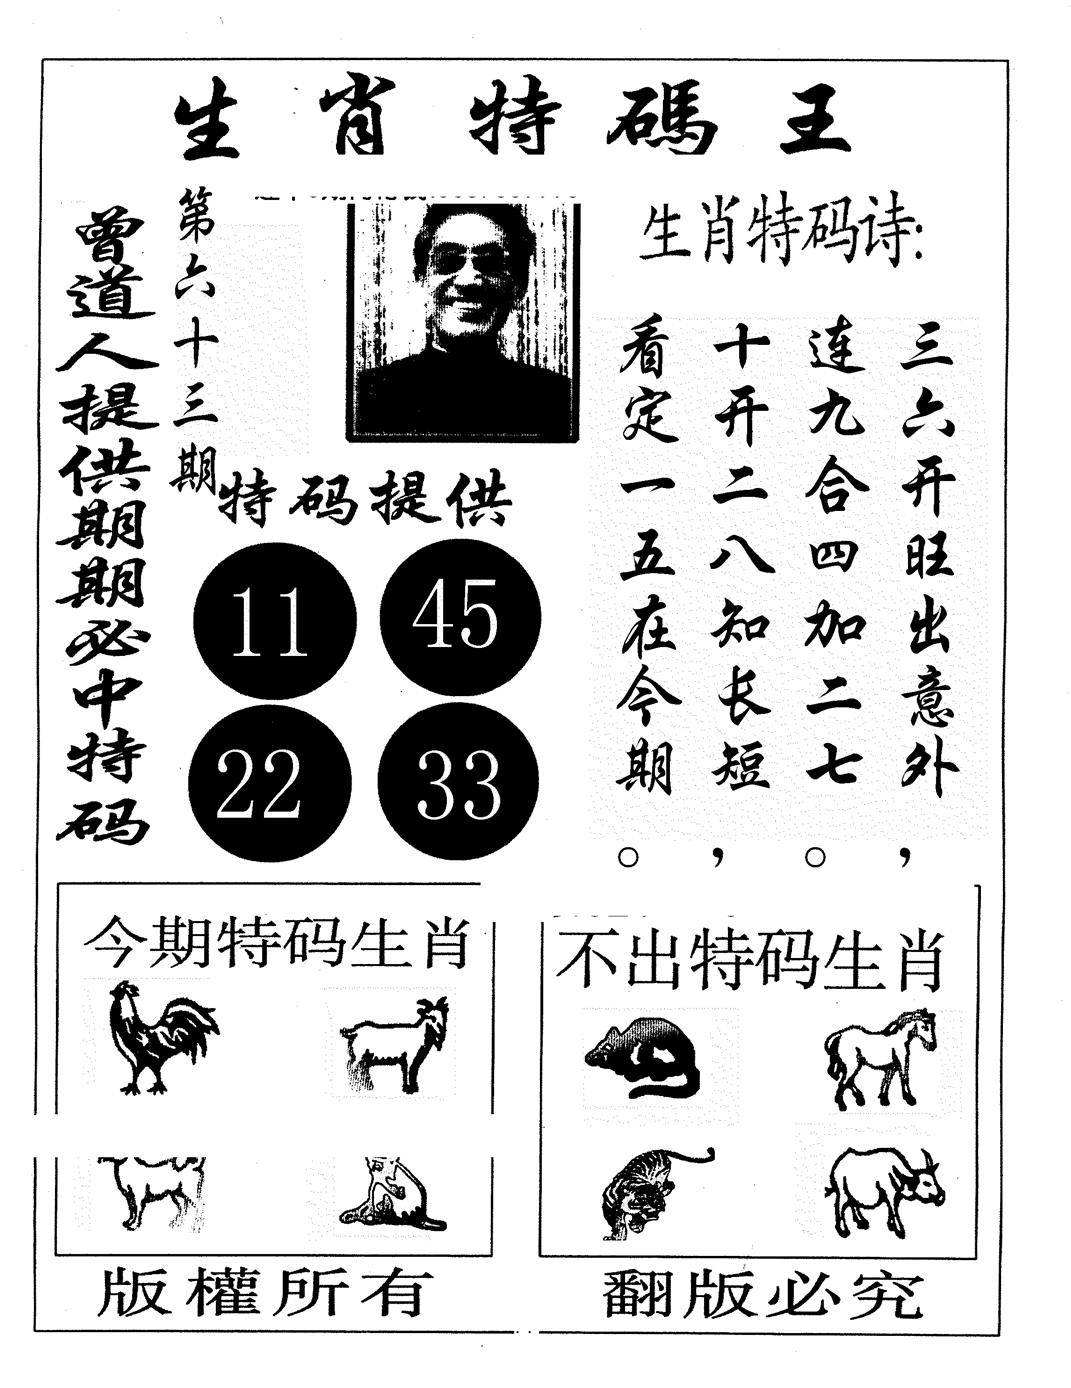 生肖特碼王
第六十三期
曾道人提供期期必中特码
特码提供
11
45
22
33
生肖特码诗:
三六开旺出意外,
连九合四加二七。
十开二八知长短,
看定一五在今期。
今期特码生肖
不出特码生肖
版權所有
翻版必究